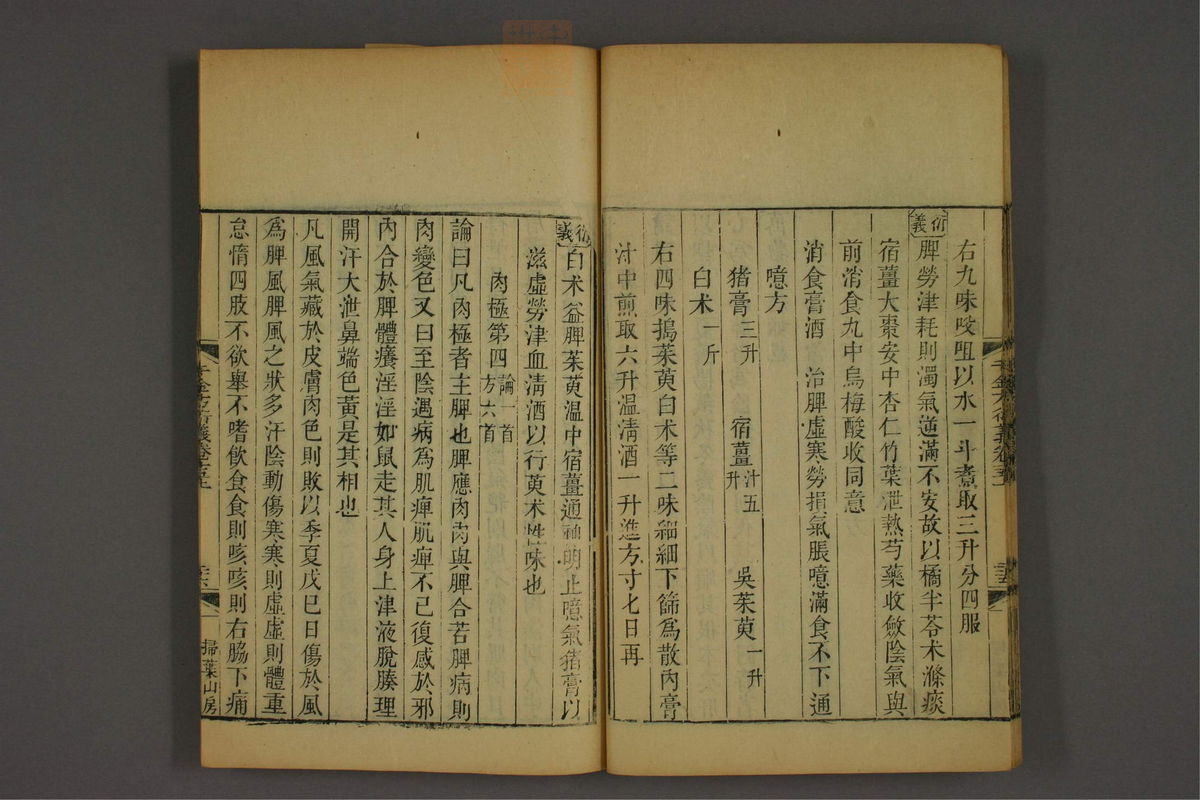 右九味㕮咀以水一斗煑取三升分四服
衍義
脾勞津耗則濁氣逆滿不安故以橘半苓术滌痰
宿薑大棗安中杏仁竹葉泄熱芍藥收斂陰氣與
前消食丸中烏梅酸收同意
消食膏酒 治脾虛寒勞損氣脹噫滿食不下通
噫方
猪膏三升 宿薑汁五升 吳茱萸一升
白术一斤
右四味搗茱萸白术等二味細細下篩爲散內膏
汁中煎取六升温清酒一升進方寸匕日再
衍義
白术益脾茱萸温中宿薑通神明止噫氣猪膏以
滋虛勞津血清酒以行萸术性味也
肉極第四論一首方六首
論曰凡肉極者主脾也脾應肉肉與脾合若脾病則
肉變色又曰至陰遇病爲肌痺肌痺不已復感於邪
內合於脾體癢淫淫如鼠走其人身上津液脫腠理
開汗大泄鼻端色黃是其相也
凡風氣藏於皮膚肉色則敗以季夏戊巳日傷於風
爲脾風脾風之狀多汗陰動傷寒寒則虛虛則體重
怠惰四肢不欲舉不嗜飲食食則咳咳則右脇下痛
掃葉山房